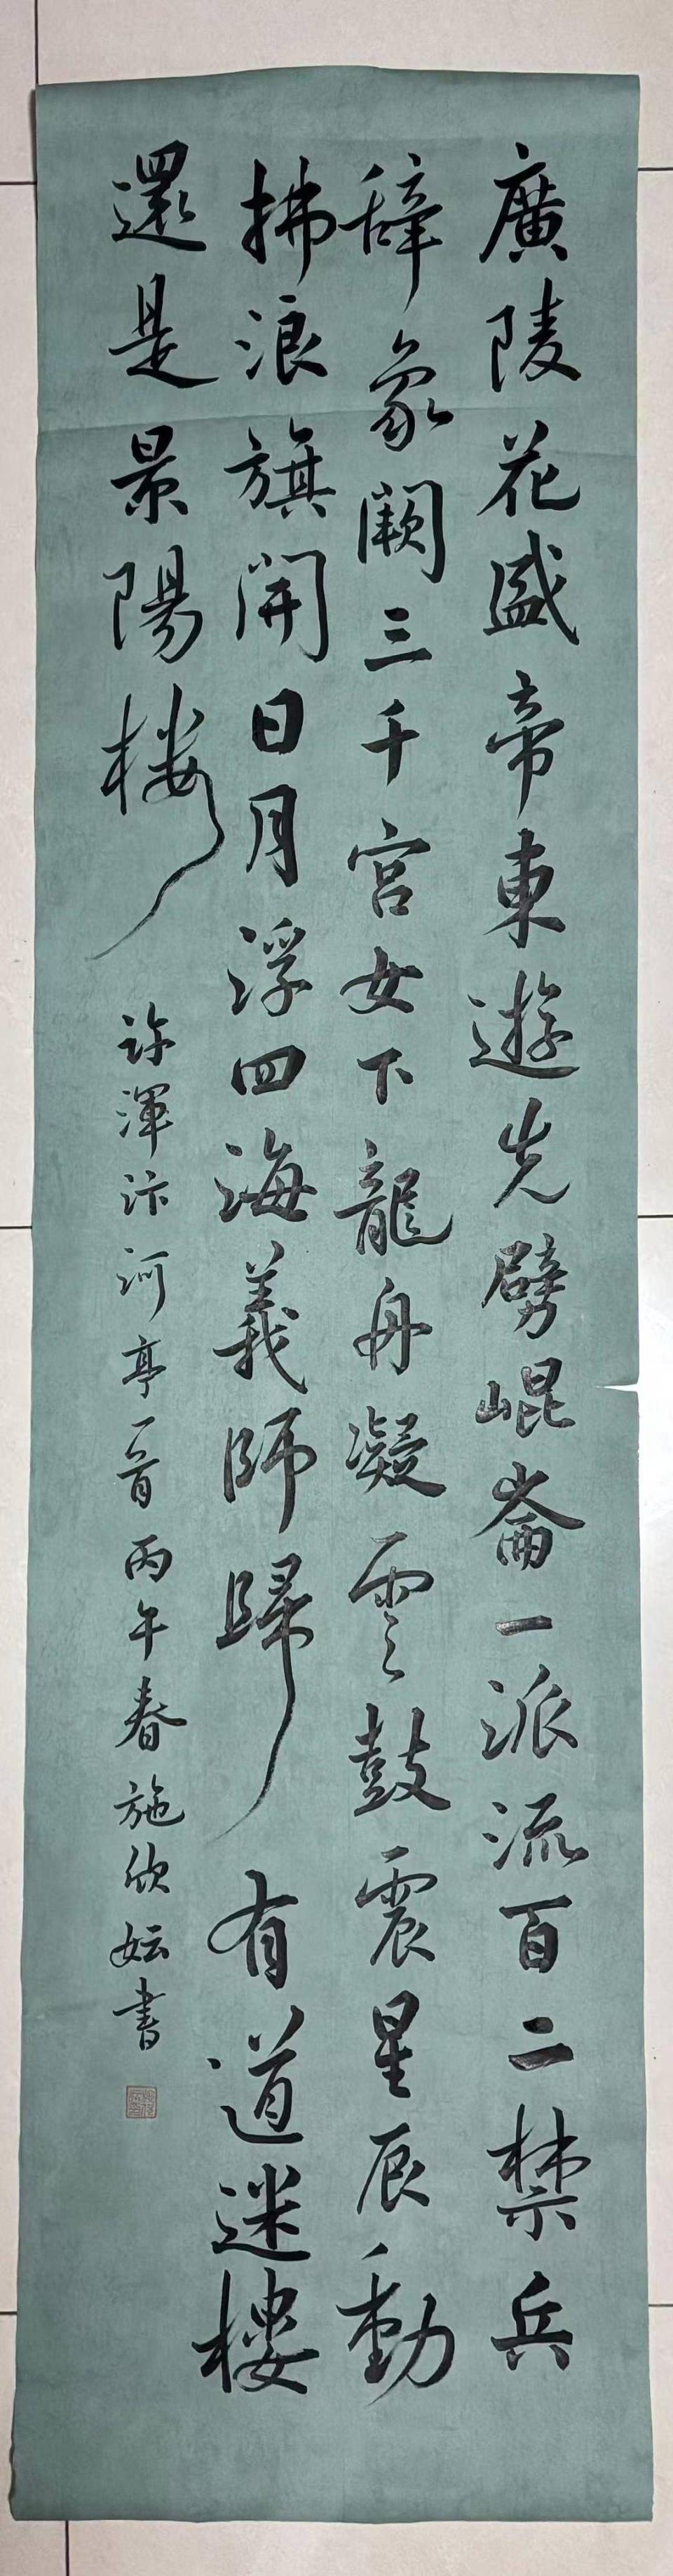 廣陵花盛帝東遊先劈崐崙一派流百二禁兵
辭象闕三千宮女下龍舟凝雲鼓震星辰動
拂浪旗開日月浮四海義師歸有道迷樓
還是景陽樓
許渾汴河亭一首丙午春施欣妘書